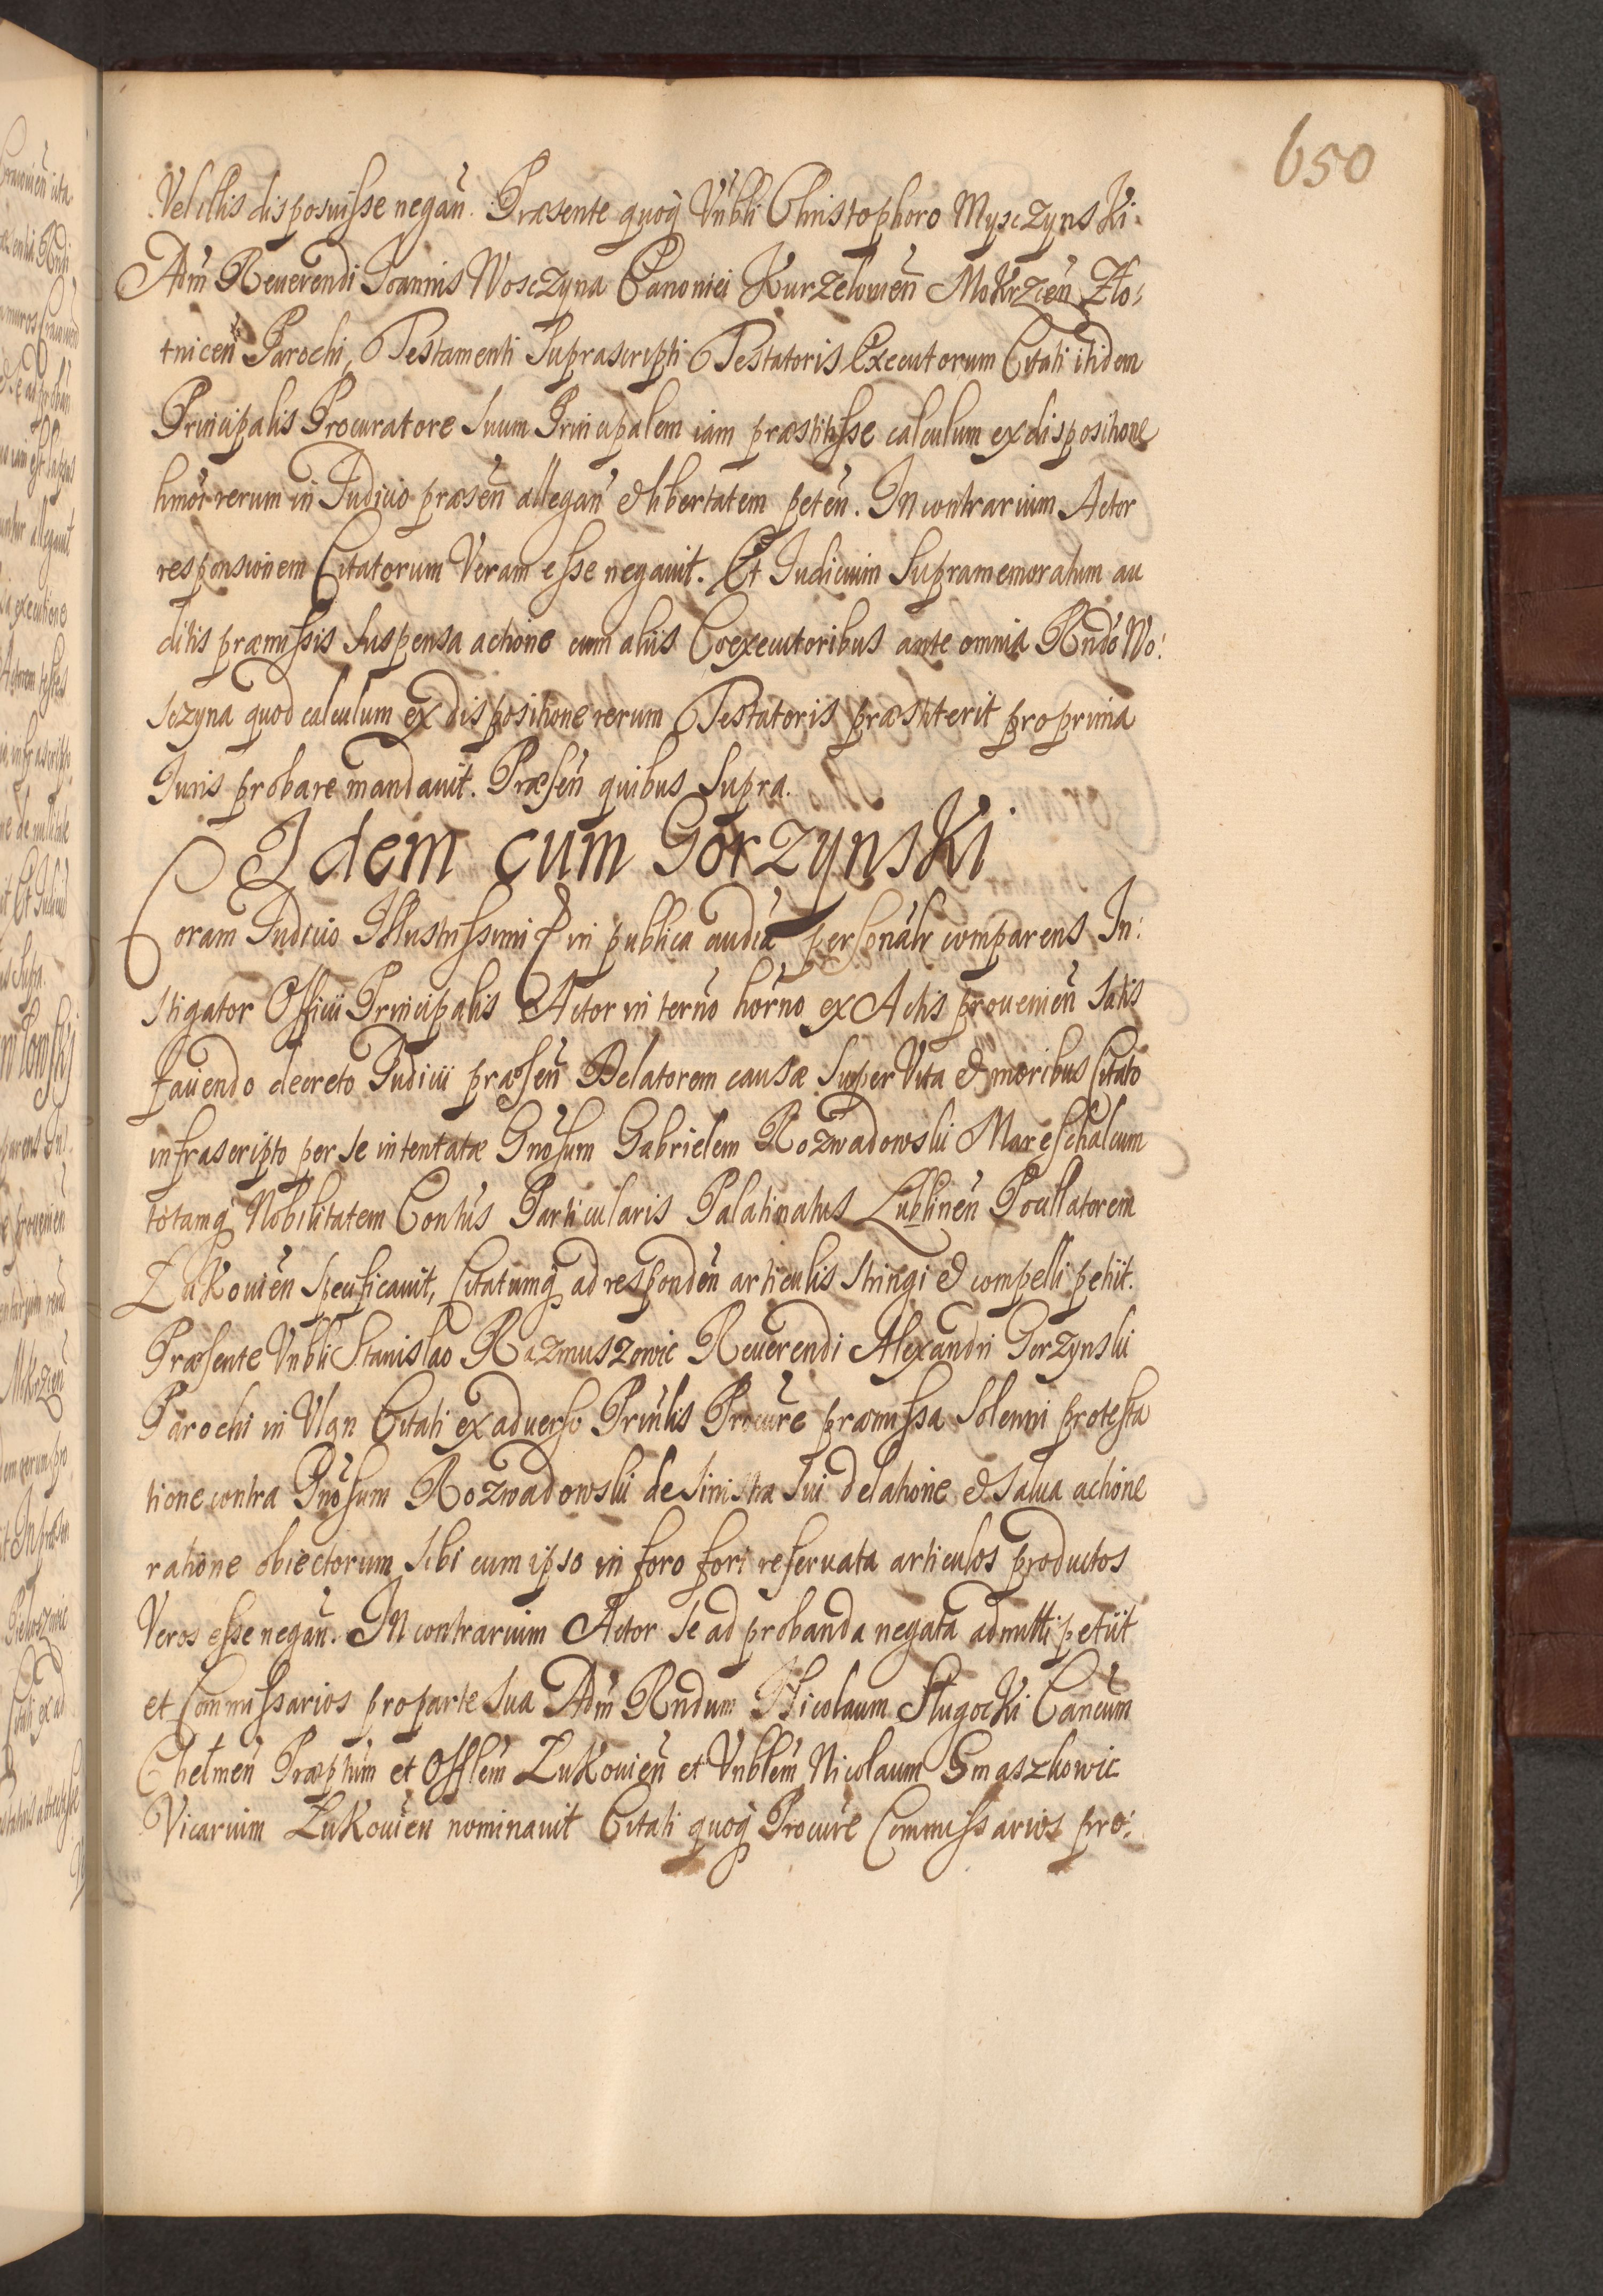 650
Vel illis disposuisse negań. Præsente quoq̃ Vńbli Christophoro MysczynsKi
Adm̃ Reuerendi Joannis Wosczyna Canonici Kurzelouień MoKrzceń Zło:
tniceń Parochi, Testamenti Suprascripti Testatoris Executorum Citati itidem
Principalis Procuratore Suum Principalem iam præstitisse calculum ex dispositione
hmõi rerum in Judicio præseń allegań & libertatem peteń. In contrarium Actor
responsionem Citatorum Veram esse negauit. Et Judicium Supramemoratum au
ditis præmissis Suspensa actione cum aliis Coexecutoribus ante omnia Rńdo Wo:
sczyna quod calculum ex dispositione rerum Testatoris præstiterit pro prima
Juris probare mandauit. Præseń quibus Supra.
Idem cum GorzynsKi
Coram Judicio Illustrissimi & in publica audiã personalr comparens In:
stigator Officii Principalis Actor in termo horno ex Actis prouenień Satis
faciendo decreto Judicii præseń Delatorem causæ Super Vita & moribus Citato
infrascripto per se intentatæ Gńosum Gabrielem Rozwadowski Mareschalcum
totamq̃ Nobilitatem Contus Particularis Palatinatus Lublineń Pocillatorem
ŁuKouień Specificauit, Citatumq̃ ad respondeń articulis Stringi & compelli petiit.
Præsente Vńbli Stanislao Razmuszowic Reuerendi Alexandri Gorzynski
Parochi in Vlan Citati ex aduerso Prińlis Procure præmissa Solenni protesta
tione contra Gńosum Rozwadowski de Sinistra Sui delatione & Salua actione
ratione obiectorum Sibi cum ipso in foro fori reseruata articulos productos
Veros esse negań. In contrarium Actor Se ad probanda negata admitti petiit
et Commissarios pro parte Sua Adm̃ Rndum Nicolaum StugocKi Cancum
Chełmeń Præptum et Offlem ŁuKouień et Vnblem Nicolaum Smaszkowic
Vicarium ŁuKouień nominauit Citati quoq̃ Procure Commissarios pro: